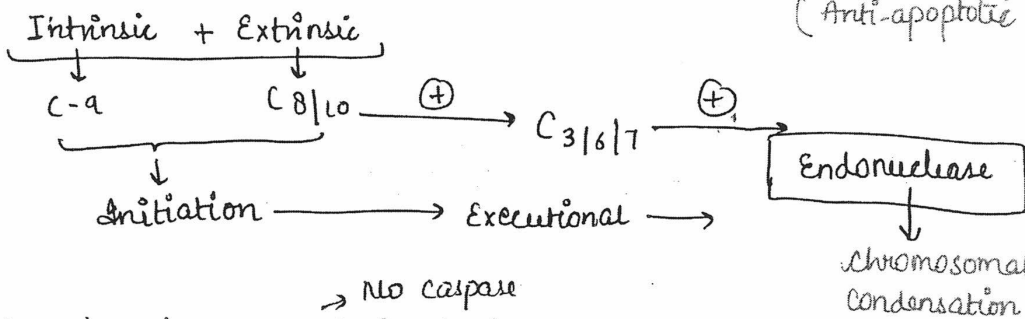 (Anti-apoptotic
Intrinsic + Extrinsic
C-9 C 8/10 + C 3/6/7 + Endonuclease
Initiation Executional
Chromosomal
Condensation
No caspase